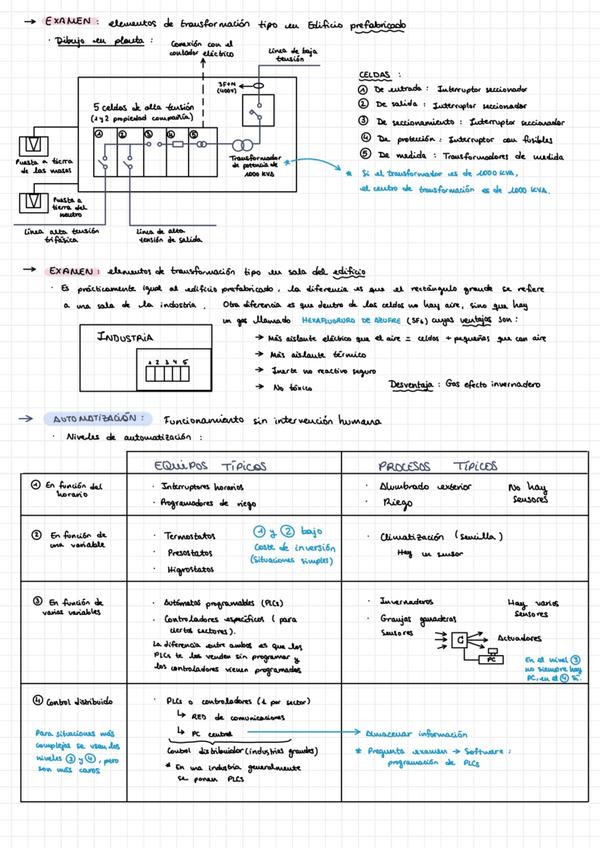 → EXAMEN: elementos de transformación tipo en Edificio prefabricado
· Dibujo en planta:
Conexión con el
contador eléctrico
Línea de baja
tensión
3F+N
(400V)
5 celdas de alta tensión
(1 y 2 propiedad compañía)
1 2 3 4 5
Puesta a tierra
de las masas
Puesta a
tierra del
neutro
Transformador
de potencia de
1000 KVA
Línea alta tensión
trifásica
Línea de alta
tensión de salida
CELDAS:
① De entrada: Interruptor seccionador
② De salida: Interruptor seccionador
③ De seccionamiento: Interruptor seccionador
④ De protección: Interruptor con fusibles
⑤ De medida: Transformadores de medida
* Si el transformador es de 1000 KVA,
el centro de transformación es de 1000 KVA.
→ EXAMEN: elementos de transformación tipo en sala del edificio
· Es prácticamente igual al edificio prefabricado, la diferencia es que el rectángulo grande se refiere
a una sala de la industria. Otra diferencia es que dentro de las celdas no hay aire, sino que hay
un gas llamado HEXAFLUORURO DE AZUFRE (SF6) cuyas ventajas son:
INDUSTRIA
1 2 3 4 5
→ Más aislante eléctrico que el aire = celdas + pequeñas que con aire
→ Más aislante térmico
→ Inerte no reactivo seguro
→ No tóxico
Desventaja: Gas efecto invernadero
→ AUTOMATIZACIÓN: Funcionamiento sin intervención humana
· Niveles de automatización:
EQUIPOS TÍPICOS
PROCESOS TÍPICOS
① En función del
horario
· Interruptores horarios
· Programadores de riego
· Alumbrado exterior
· Riego
No hay
sensores
② En función de
una variable
· Termostatos
· Presostatos
· Higrostatos
① y ② bajo
coste de inversión
(situaciones simples)
· Climatización (sencilla)
Hay un sensor
③ En función de
varias variables
· Autómatas programables (PLCs)
· Controladores específicos (para
ciertos sectores).
La diferencia entre ambos es que los
PLCs te los venden sin programar y
los controladores vienen programados
· Invernaderos
· Granjas ganaderas
Hay varios
sensores
Sensores
C
Actuadores
PC
En el nivel ③
no siempre hay
PC, en el ④ sí.
④ Control distribuido
Para situaciones más
complejas se usan los
niveles ③ y ④, pero
son más caros
· PLCs o controladores (1 por sector)
↳ RED de comunicaciones
↳ PC central
Control distribuidor (industrias grandes)
* En una industria generalmente
se ponen PLCs
→ Almacenar información
* Pregunta examen → Software:
programación de PLCs